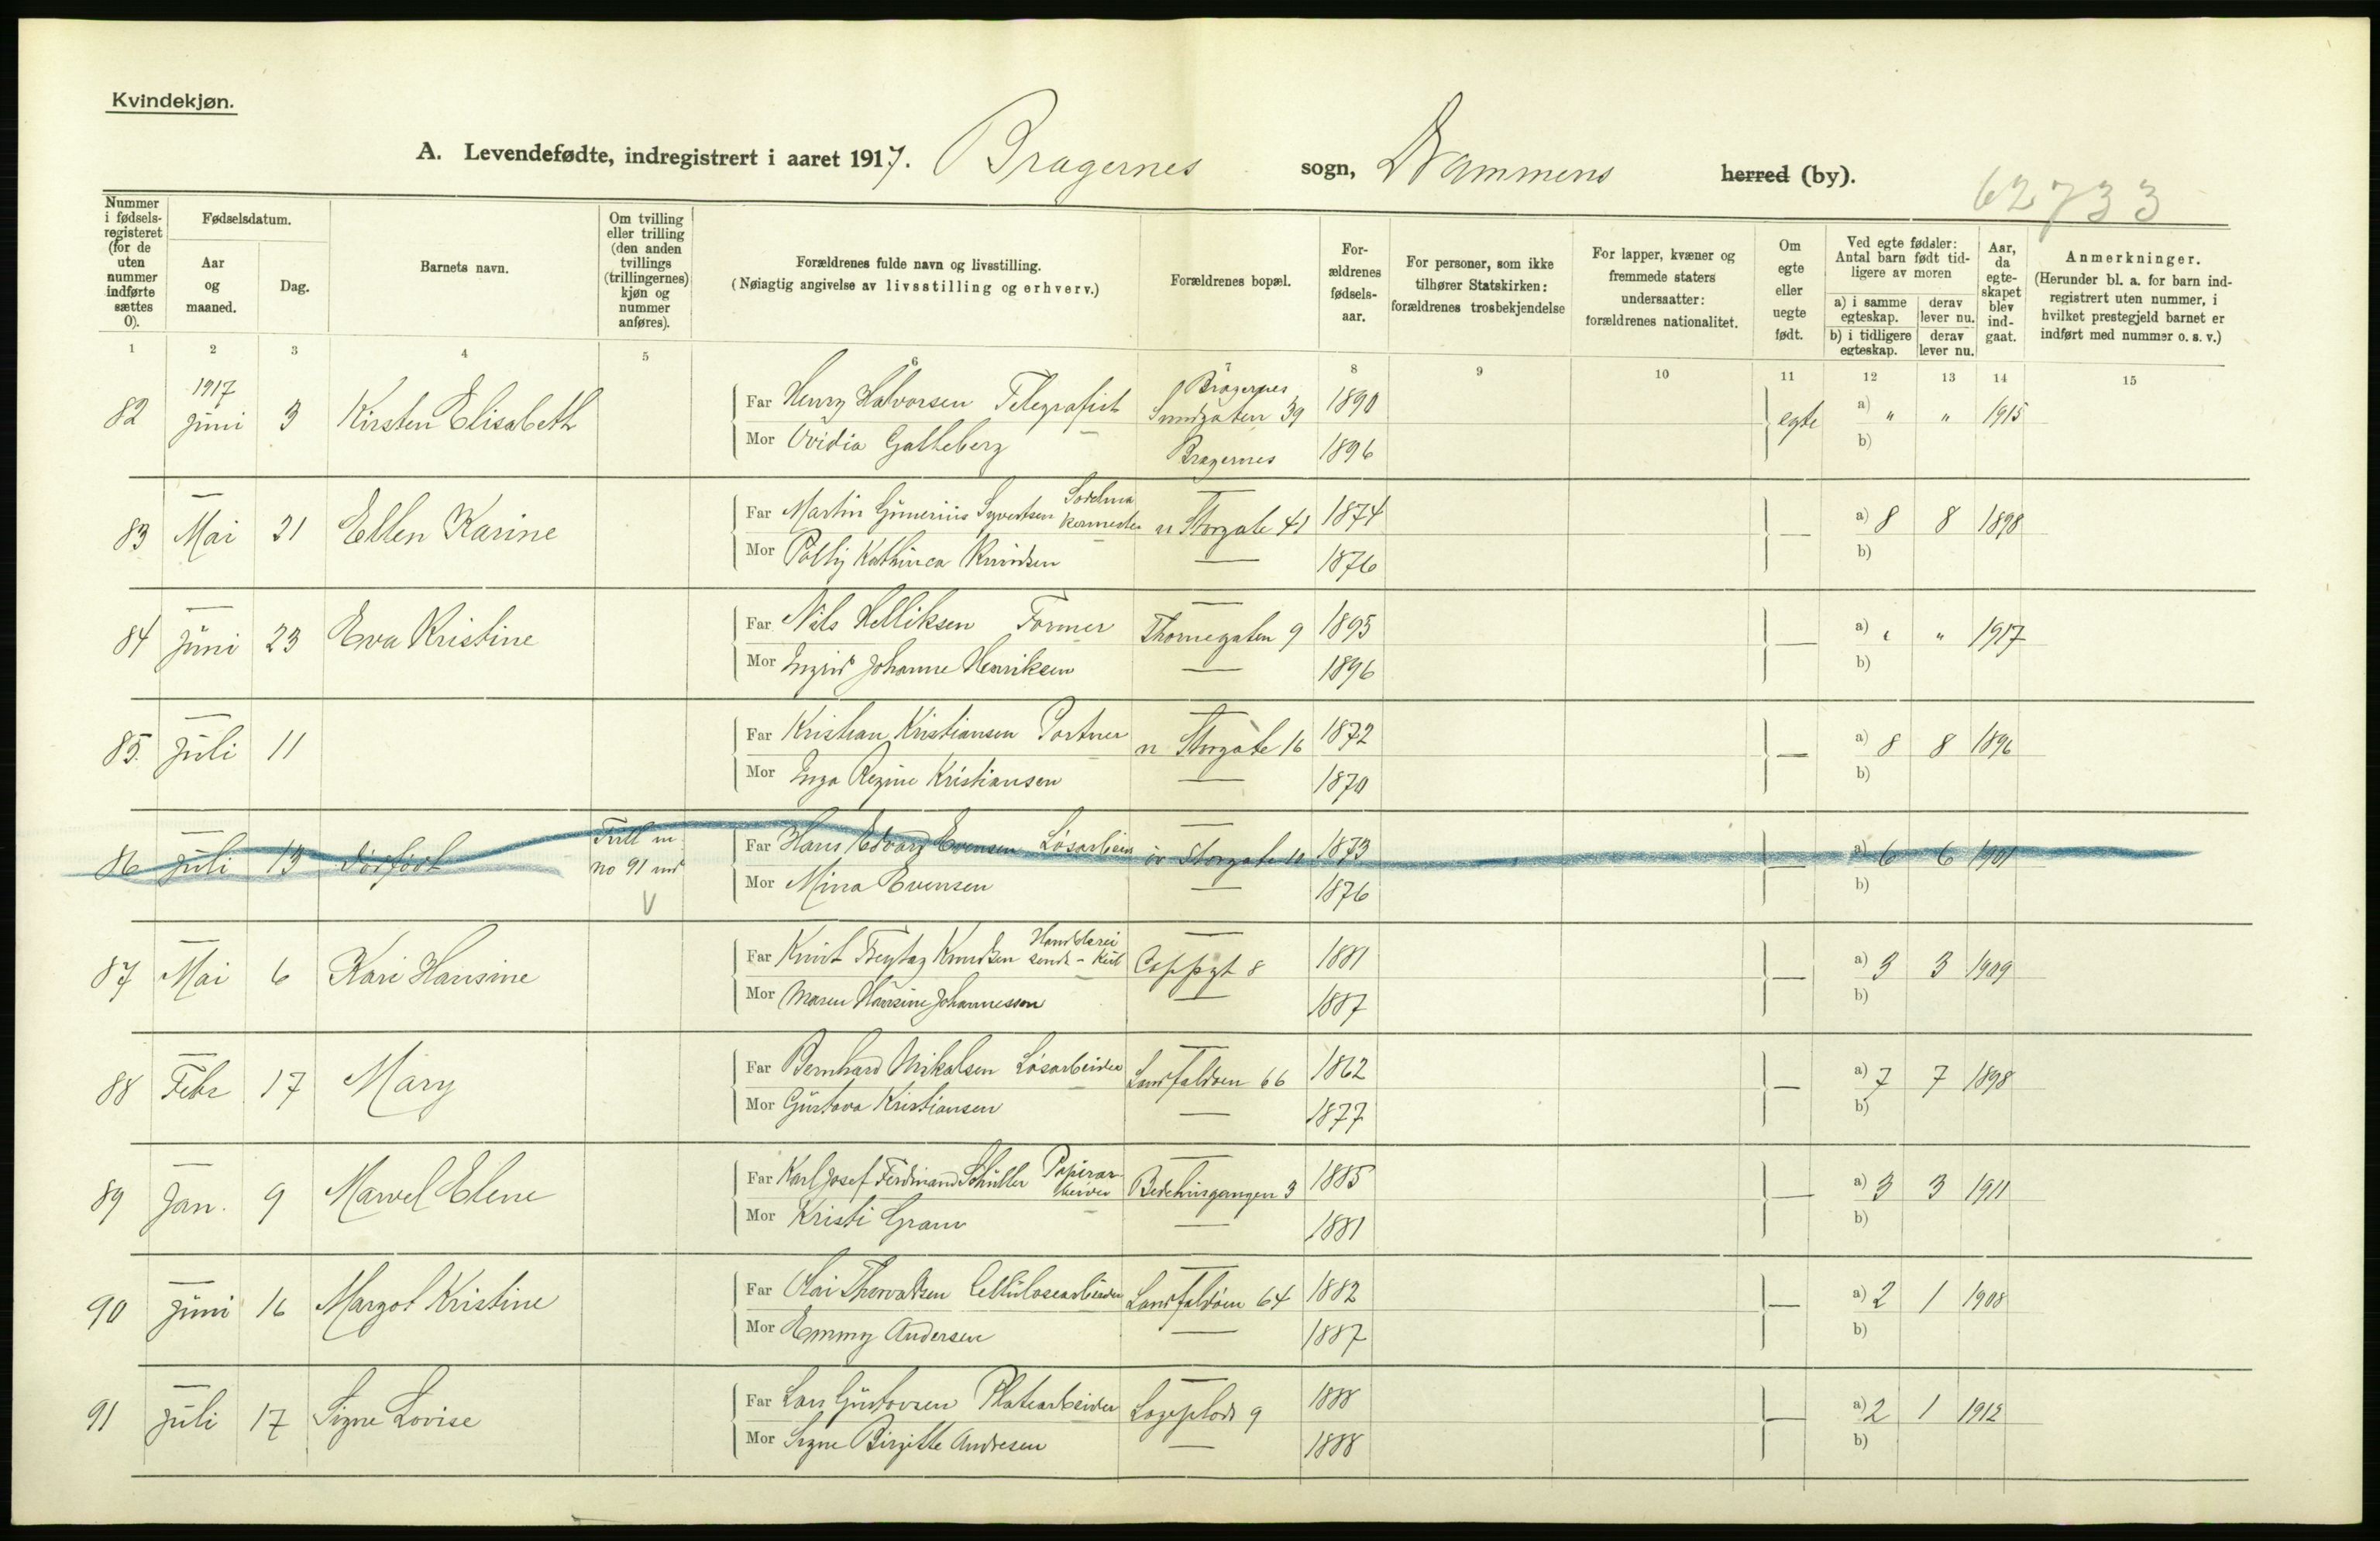 Kvindekjøn.
A. Levendefødte, indregistrert i aaret 1917. Bragernes sogn, Drammens herred (by).
62733
Nummer i fødselsregisteret (for de uten nummer indførte sættes 0).
Fødselsdatum.
Aar og maaned.
Dag.
Barnets navn.
Om tvilling eller trilling (den anden tvillings (trillingernes) kjøn og nummer anføres).
Forældrenes fulde navn og livsstilling.
(Nøiagtig angivelse av livsstilling og erhverv.)
Forældrenes bopæl.
Forældrenes fødselsaar.
For personer, som ikke tilhører Statskirken: forældrenes trosbekjendelse
For lapper, kvæner og fremmede staters undersaatter: forældrenes nationalitet.
Om egte eller uegte født.
Ved egte fødsler: Antal barn født tidligere av moren
a) i samme egteskap. derav lever nu.
b) i tidligere egteskap. derav lever nu.
Aar, da egteskapet blev indgaat.
Anmerkninger.
(Herunder bl. a. for barn indregistrert uten nummer, i hvilket prestegjeld barnet er indført med nummer o. s. v.)
1 2 3 4 5 6 8 9 10 11 12 13 14 15
1917 Bragernes
82 Juni 3 Kirsten Elisabeth Far Henry Halvorsen Telegrafist Sundgaten 39 1890 egte a) " " 1915
Mor Ovidia Galteberg Bragernes 1896 b)
83 Mai 21 Ellen Karine Far Martin Gunerius Syvertsen n Storgate 41 1874 — a) 8 8 1898
Mor Polly Kathinca Knudsen — 1876 b)
84 Juni 23 Eva Kristine Far Nils Kelliksen Former Thornegaten 9 1895 — a) " " 1917
Mor Ingrid Johanne Henriksen — 1896 b)
85. Juli 11 Far Kristian Kristiansen Portner n Storgate 16 1872 — a) 8 8 1896
Mor Inga Regine Kristiansen — 1870 b)
86 Juli 13 dødfødt no 91 Far Hans Edvard Evensen Løsarbeid øv Storgate 1873 — a) 6 6 1901
Mor Mina Evensen — 1876 b)
87 Mai 6 Kari Hansine Far Knut Freytag Knudsen Cappgt 8 1881 — a) 3 3 1909
Mor Maren Hansine Johannessen — 1887 b)
88 Febr 17 Mary Far Bernhard Mikalsen Løsarbeider Landfaldøen 66 1862 — a) 7 7 1898
Mor Gustava Kristiansen — 1877 b)
89 Jan. 9 Marvel Elene Far Karl Josef Ferdinand Schüller Papirarbeider Bedehusgangen 3 1885 — a) 3 3 1911
Mor Kristi Gram — 1881 b)
90 Juni 16 Margot Kristine Far Olai Thorvaldsen Cellulosearbeider Landfaldøen 64 1882 — a) 2 1 1908
Mor Emmy Andersen — 1887 b)
91 Juli 17 Signe Lovise Far Lars Gustavsen Platearbeider 9 1888 — a) 2 1 1912
Mor Signe Birgitte Andresen — 1888 b)